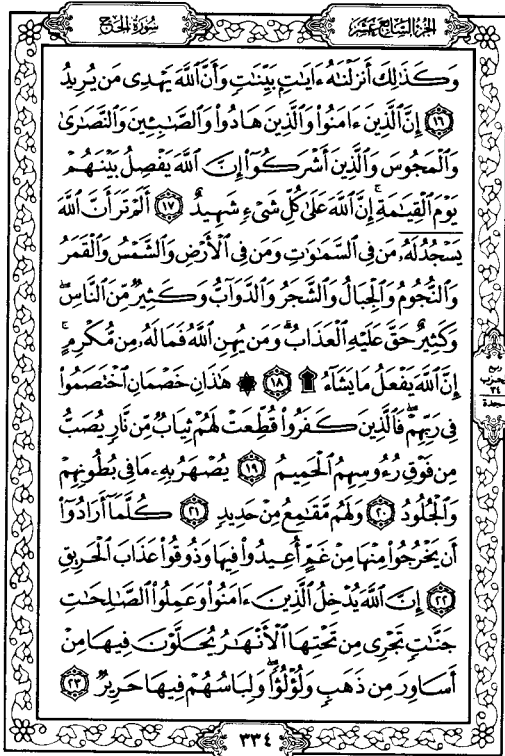 الجزء السابع عشر
سورة الحج
وَكَذَٰلِكَ أَنزَلْنَٰهُ ءَايَٰتٍۭ بَيِّنَٰتٍ وَأَنَّ ٱللَّهَ يَهْدِى مَن يُرِيدُ
١٦ إِنَّ ٱلَّذِينَ ءَامَنُوا۟ وَٱلَّذِينَ هَادُوا۟ وَٱلصَّٰبِـِٔينَ وَٱلنَّصَٰرَىٰ
وَٱلْمَجُوسَ وَٱلَّذِينَ أَشْرَكُوٓا۟ إِنَّ ٱللَّهَ يَفْصِلُ بَيْنَهُمْ
يَوْمَ ٱلْقِيَٰمَةِ ۚ إِنَّ ٱللَّهَ عَلَىٰ كُلِّ شَىْءٍ شَهِيدٌ ١٧ أَلَمْ تَرَ أَنَّ ٱللَّهَ
يَسْجُدُ لَهُۥ مَن فِى ٱلسَّمَٰوَٰتِ وَمَن فِى ٱلْأَرْضِ وَٱلشَّمْسُ وَٱلْقَمَرُ
وَٱلنُّجُومُ وَٱلْجِبَالُ وَٱلشَّجَرُ وَٱلدَّوَآبُّ وَكَثِيرٌ مِّنَ ٱلنَّاسِ ۖ
وَكَثِيرٌ حَقَّ عَلَيْهِ ٱلْعَذَابُ ۗ وَمَن يُهِنِ ٱللَّهُ فَمَا لَهُۥ مِن مُّكْرِمٍ ۚ
إِنَّ ٱللَّهَ يَفْعَلُ مَا يَشَآءُ ۩ ١٨ ۞ هَٰذَانِ خَصْمَانِ ٱخْتَصَمُوا۟
فِى رَبِّهِمْ ۖ فَٱلَّذِينَ كَفَرُوا۟ قُطِّعَتْ لَهُمْ ثِيَابٌ مِّن نَّارٍ يُصَبُّ
مِن فَوْقِ رُءُوسِهِمُ ٱلْحَمِيمُ ١٩ يُصْهَرُ بِهِۦ مَا فِى بُطُونِهِمْ
وَٱلْجُلُودُ ٢٠ وَلَهُم مَّقَٰمِعُ مِنْ حَدِيدٍ ٢١ كُلَّمَآ أَرَادُوٓا۟
أَن يَخْرُجُوا۟ مِنْهَا مِنْ غَمٍّ أُعِيدُوا۟ فِيهَا وَذُوقُوا۟ عَذَابَ ٱلْحَرِيقِ
٢٢ إِنَّ ٱللَّهَ يُدْخِلُ ٱلَّذِينَ ءَامَنُوا۟ وَعَمِلُوا۟ ٱلصَّٰلِحَٰتِ
جَنَّٰتٍ تَجْرِى مِن تَحْتِهَا ٱلْأَنْهَٰرُ يُحَلَّوْنَ فِيهَا مِنْ
أَسَاوِرَ مِن ذَهَبٍ وَلُؤْلُؤًا ۖ وَلِبَاسُهُمْ فِيهَا حَرِيرٌ ٢٣
ربع
٣٤
سجدة
٣٣٤